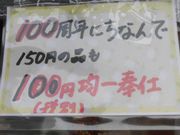 100周年にちなんで
150円の品も
100円均一奉仕
(税別)